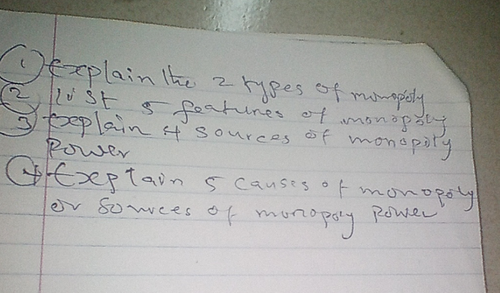 1 Explain the 2 types of monopoly
2 List 5 features of monopoly
3 Explain 4 sources of monopoly
power
4 Explain 5 causes of monopoly
or sources of monopoly power